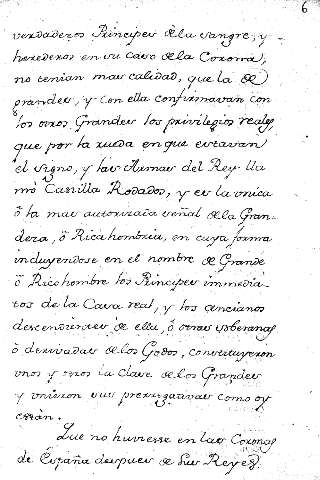 6
verdaderos Principes de la sangre, y
herederos en su caso de la Corona,
no tenian mas calidad, que la de
grandes, y con ella confirmavan con
los otros Grandes los privilegios reales,
que por la rueda en que estavan
el signo, y las Armas del Rey lla
mó Castilla Rodados, y es la unica
ô la mas autorizada señal de la Gran-
deza, ô Ricahombria, en cuya forma
incluyendose en el nombre de Grande
ô Ricohombre los Principes immedia-
tos de la Casa real, y los ancianos
descendientes de ella, ô otras soberanas
ô derivadas de los Godos, constituyeron
unos y otros la clase de los Grandes
y unieron sus prerrogativas como oy
están.
Que no huviesse en las Coronas
de España despues de sus Reyes